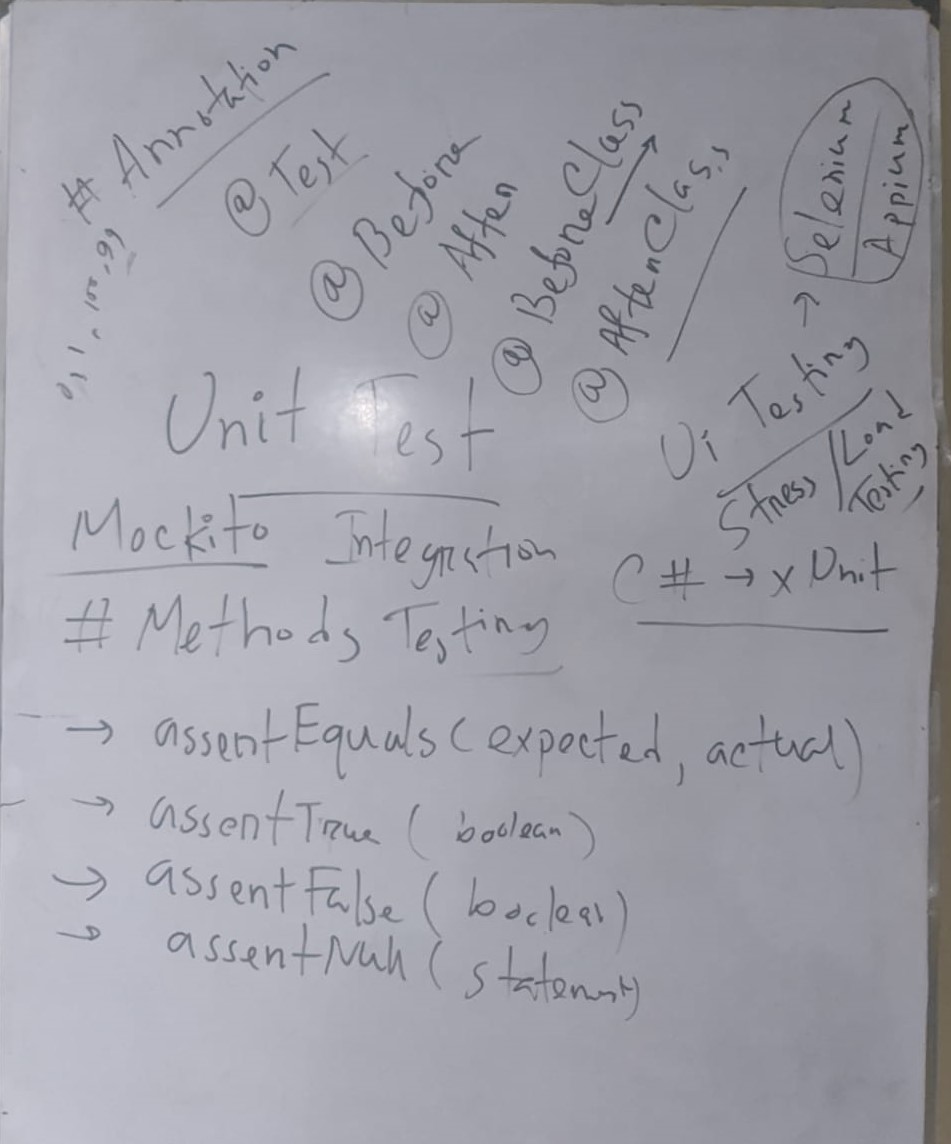 # Annotation
@ Test
@ Before
@ After
@ BeforeClass
@ AfterClass
0, 1, 100, 99
Unit Test
Ui Testing → Selenium
Appium
Stress / Load Testing
Mockito Integration
C# → xUnit
# Methods Testing
→ assertEquals (expected, actual)
→ assertTrue (boolean)
→ assertFalse (boolean)
→ assertNull (statement)